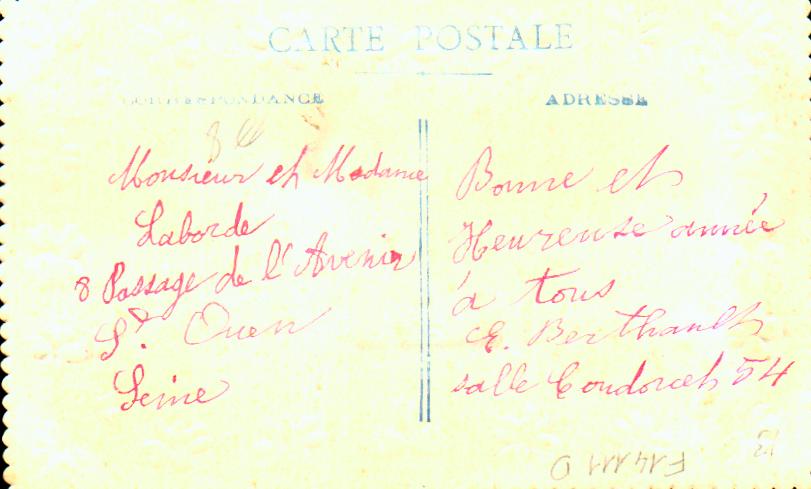 CARTE POSTALE
CORRESPONDANCE
ADRESSE
Monsieur et Madame
Laborde
8 Passage de l'Avenir
St. Ouen
Seine
Bonne et
Heureuse année
à tous
E. Berthault
salle Condorcet 54